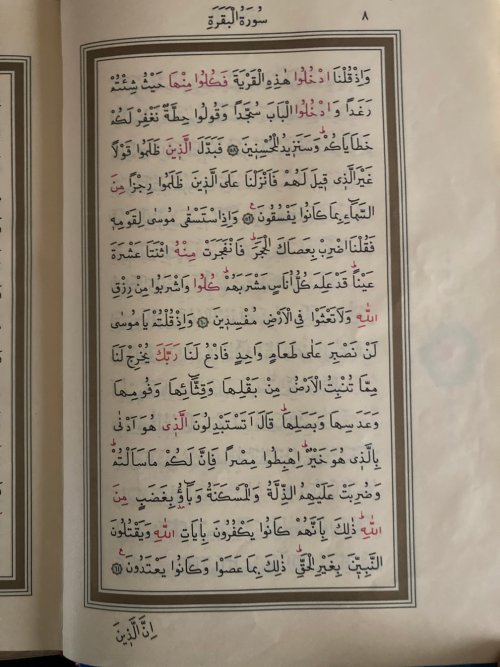 سُورَةُ الْبَقَرَةِ ٨
وَاِذْ قُلْنَا ادْخُلُوا هٰذِهِ الْقَرْيَةَ فَكُلُوا مِنْهَا حَيْثُ شِئْتُمْ
رَغَدًا وَادْخُلُوا الْبَابَ سُجَّدًا وَقُولُوا حِطَّةٌ نَغْفِرْ لَكُمْ
خَطَايَاكُمْۜ وَسَنَزِيدُ الْمُحْسِنِينَ ﴿٥٨﴾ فَبَدَّلَ الَّذِينَ ظَلَمُوا قَوْلًا
غَيْرَ الَّذِي قِيلَ لَهُمْ فَاَنْزَلْنَا عَلَى الَّذِينَ ظَلَمُوا رِجْزًا مِنَ
السَّمَٓاءِ بِمَا كَانُوا يَفْسُقُونَ ﴿٥٩﴾ وَاِذِ اسْتَسْقٰى مُوسٰى لِقَوْمِهِ
فَقُلْنَا اضْرِبْ بِعَصَاكَ الْحَجَرَۜ فَانْفَجَرَتْ مِنْهُ اثْنَتَا عَشْرَةَ
عَيْنًاۜ قَدْ عَلِمَ كُلُّ اُنَاسٍ مَشْرَبَهُمْۜ كُلُوا وَاشْرَبُوا مِنْ رِزْقِ
اللّٰهِ وَلَا تَعْثَوْا فِي الْاَرْضِ مُفْسِدِينَ ﴿٦٠﴾ وَاِذْ قُلْتُمْ يَا مُوسٰى
لَنْ نَصْبِرَ عَلٰى طَعَامٍ وَاحِدٍ فَادْعُ لَنَا رَبَّكَ يُخْرِجْ لَنَا
مِمَّا تُنْبِتُ الْاَرْضُ مِنْ بَقْلِهَا وَقِثَّٓائِهَا وَفُومِهَا
وَعَدَسِهَا وَبَصَلِهَاۜ قَالَ اَتَسْتَبْدِلُونَ الَّذِي هُوَ اَدْنٰى
بِالَّذِي هُوَ خَيْرٌۜ اِهْبِطُوا مِصْرًا فَاِنَّ لَكُمْ مَا سَاَلْتُمْۜ
وَضُرِبَتْ عَلَيْهِمُ الذِّلَّةُ وَالْمَسْكَنَةُ وَبَٓاؤُ۫ بِغَضَبٍ مِنَ
اللّٰهِۜ ذٰلِكَ بِاَنَّهُمْ كَانُوا يَكْفُرُونَ بِاٰيَاتِ اللّٰهِ وَيَقْتُلُونَ
النَّبِيّٖنَ بِغَيْرِ الْحَقِّۜ ذٰلِكَ بِمَا عَصَوْا وَكَانُوا يَعْتَدُونَ ﴿٦١﴾
اِنَّ الَّذِينَ